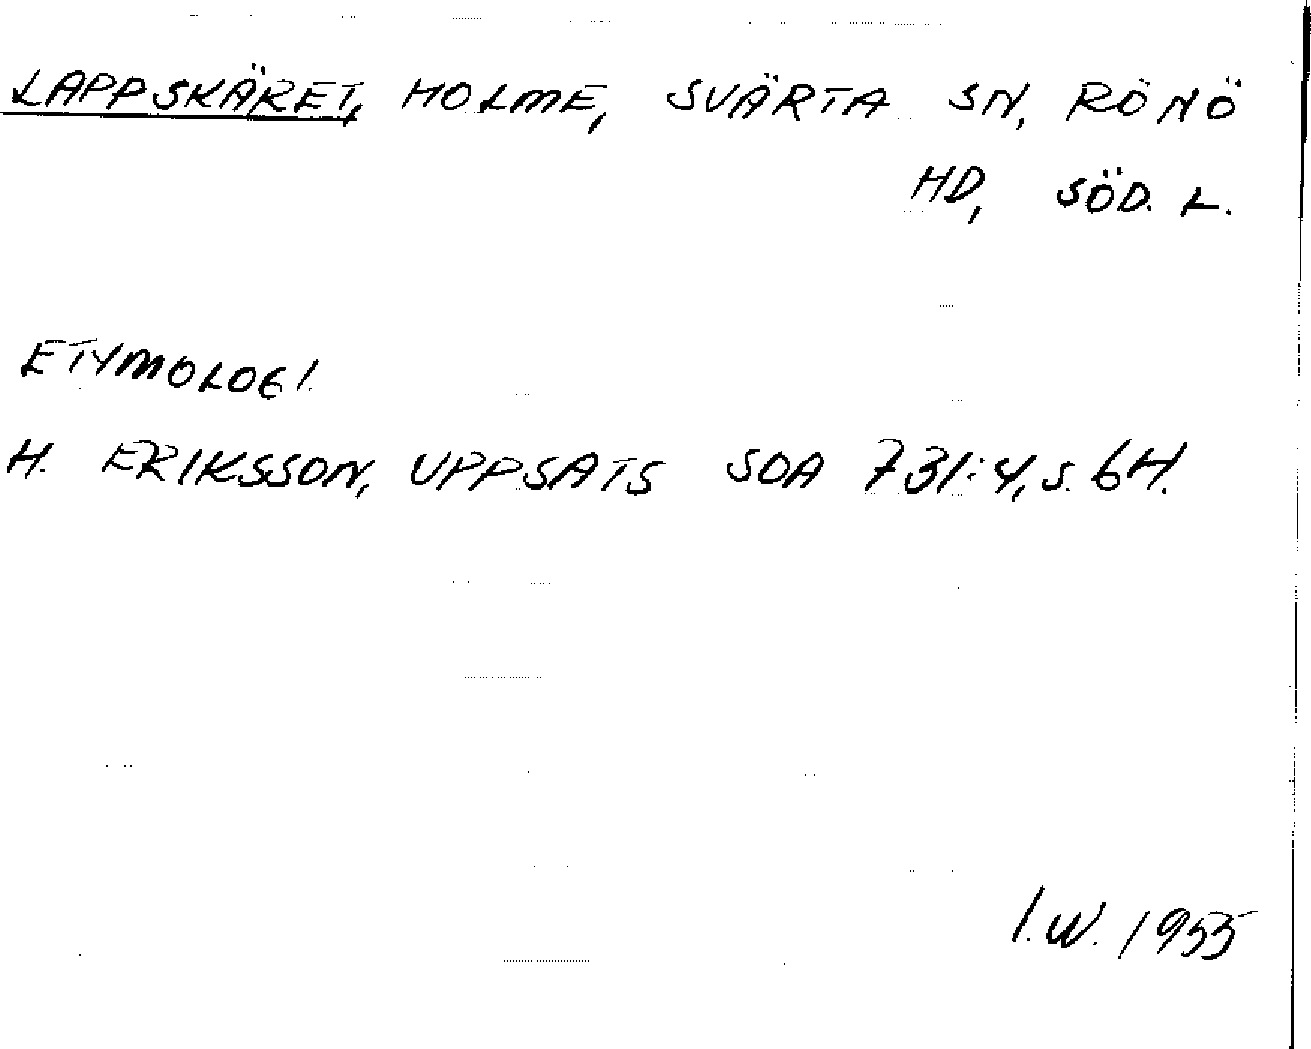 LAPPSKÄRET, HOLME, SVÄRTA SN, RÖNÖ
HD, SÖD. L.
ETYMOLOGI.
H. ERIKSSON, UPPSATS SOA 731:4, S. 64.
I.W. 1955